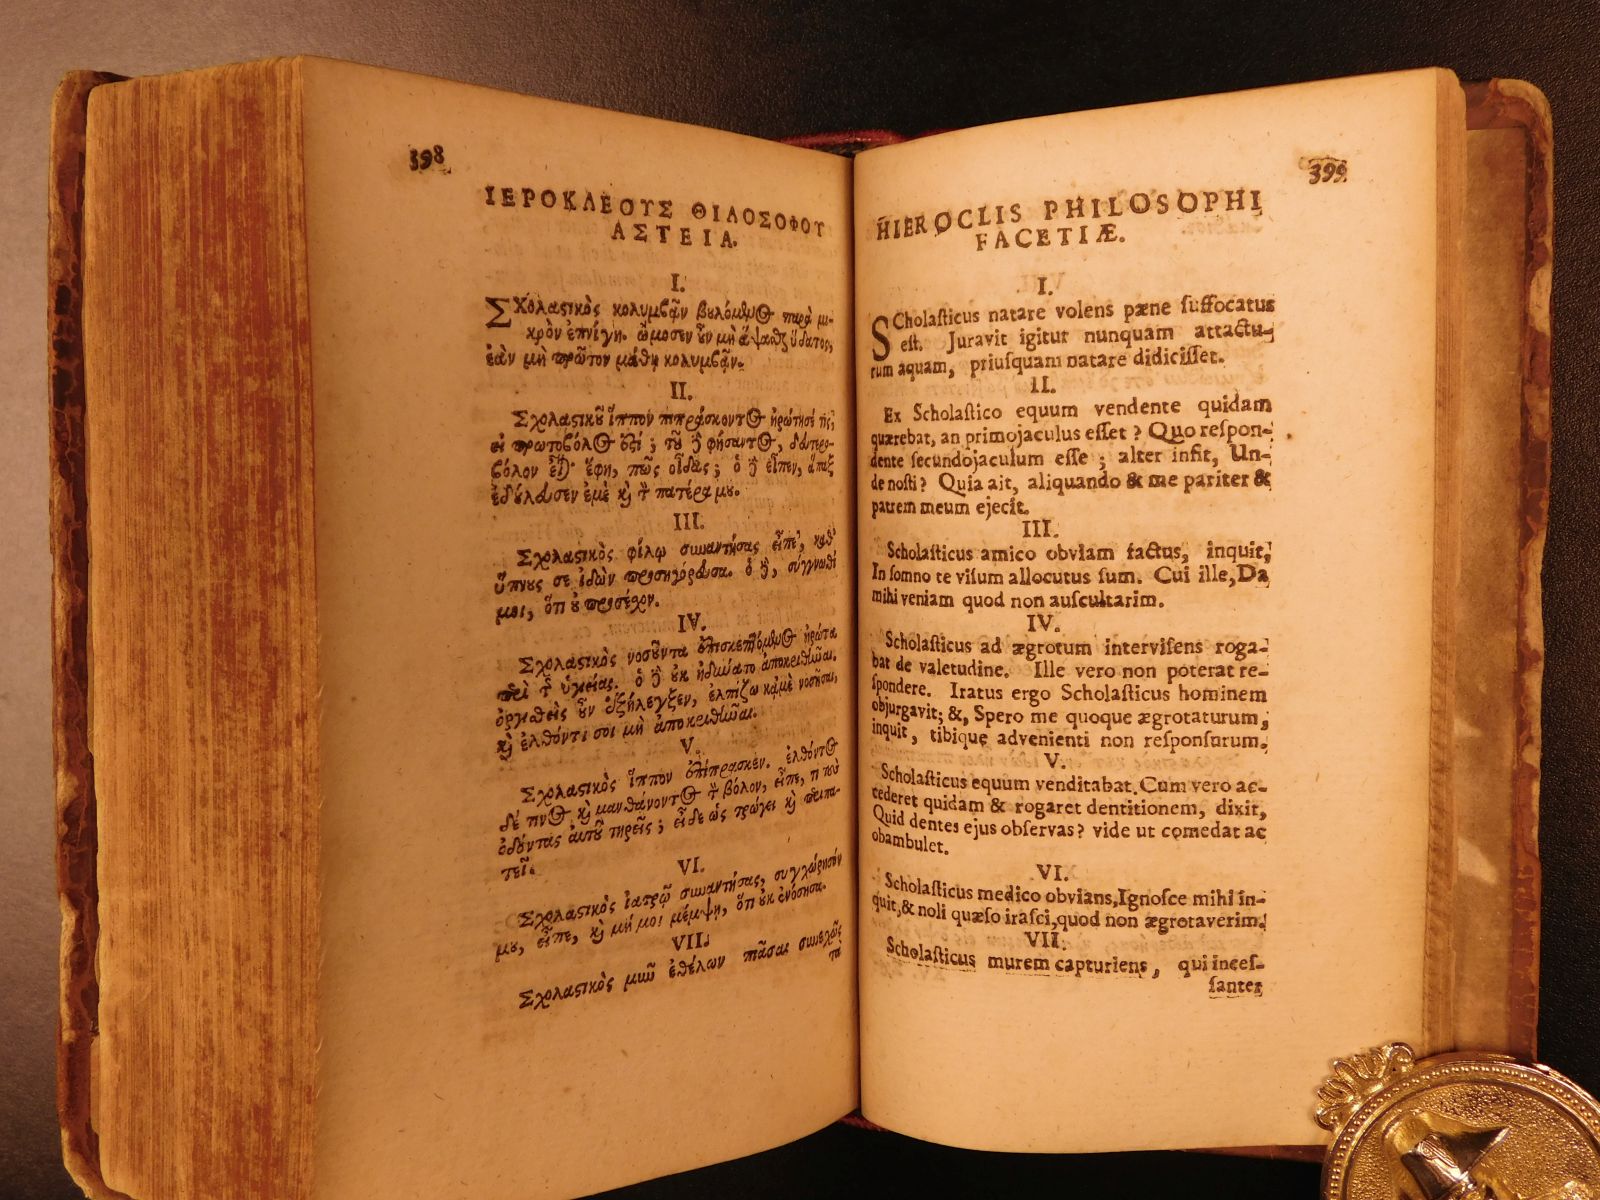 398
ΙΕΡΟΚΛΕΟΥΣ ΦΙΛΟΣΟΦΟΥ
ΑΣΤΕΙΑ.
I.
ΣΧολαστικὸς κολυμβᾶν βουλόμενος παρὰ μι-
κρὸν ἐπνίγη. ὤμοσεν οὖν μὴ ἅψασθαι ὕδατος,
ἐὰν μὴ πρῶτον μάθη κολυμβᾶν.
II.
Σχολαστικοῦ ἵππον πιπράσκοντος ἠρώτησέ τις,
εἰ πρωτοβόλος ἐστί; τοῦ δὲ φήσαντος, δευτερο-
βόλον εἶναι ἔφη, πῶς οἶδας; ὁ δὲ εἶπεν, ἅπαξ
ἔβαλεν ἐμὲ καὶ τὸν πατέρα μου.
III.
Σχολαστικὸς φίλῳ συναντήσας εἶπε, καθ'
ὕπνους σε ἰδὼν προσηγόρευσα. ὁ δὲ, σύγγνωθί
μοι, ὅτι οὐ προσέχον.
IV.
Σχολαστικὸς νοσοῦντα ἐπισκεπτόμενος ἠρώτα
περὶ τῆς ὑγιείας. ὁ δὲ οὐκ ἠδύνατο ἀποκριθῆναι.
ὀργισθεὶς οὖν ἐξήλεγξεν, ἐλπίζω κᾀμὲ νοσῆσαι,
καὶ ἐλθόντι σοι μὴ ἀποκριθῆναι.
V.
Σχολαστικὸς ἵππον ἐπίπρασκεν. ἐλθόντος
δέ τινος καὶ μανθάνοντος τὸν βόλον, εἶπε, τι τοὺς
ὀδόντας αὐτοῦ τηρεῖς; εἶδε ὡς τρώγει καὶ περιπα-
τεῖ.
VI.
Σχολαστικὸς ἰατρῷ συναντήσας, συγχώρησόν
μου, εἶπε, καὶ μή μοι μέμψη, ὅτι οὐκ ἐνόσησα.
VII.
Σχολαστικὸς μῦν ἐθέλων πιᾶσαι συνεχῶς
τὰ
399
HIEROCLIS PHILOSOPHI
FACETIÆ.
I.
SCholaſticus natare volens pæne ſuffocatus
eſt. Juravit igitur nunquam attactu-
rum aquam, priuſquam natare didiciſſet.
II.
Ex Scholaſtico equum vendente quidam
quærebat, an primojaculus eſſet? Quo reſpon-
dente ſecundojaculum eſſe; alter infit, Un-
de noſti? Quia ait, aliquando & me pariter &
patrem meum ejecit.
III.
Scholaſticus amico obviam factus, inquit,
In ſomno te viſum allocutus ſum. Cui ille, Da
mihi veniam quod non auſcultarim.
IV.
Scholaſticus ad ægrotum interviſens roga-
bat de valetudine. Ille vero non poterat re-
ſpondere. Iratus ergo Scholaſticus hominem
objurgavit; &, Spero me quoque ægrotaturum,
inquit, tibique advenienti non reſponſurum.
V.
Scholaſticus equum venditabat. Cum vero ac-
cederet quidam & rogaret dentitionem, dixit,
Quid dentes ejus obſervas? vide ut comedat ac
obambulet.
VI.
Scholaſticus medico obvians, Ignoſce mihi in-
quit, & noli quæſo iraſci, quod non ægrotaverim.
VII.
Scholaſticus murem capturiens, qui inceſ-
ſanter